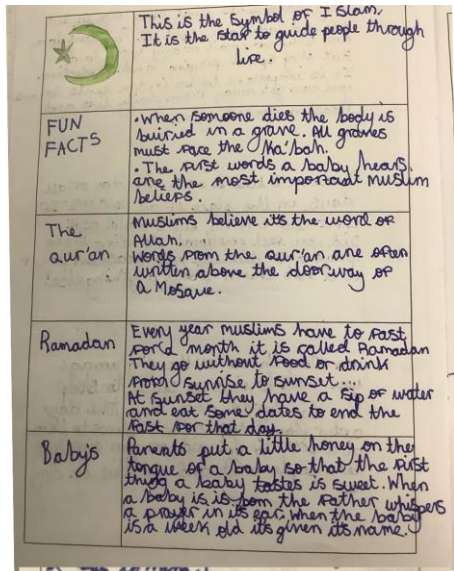 This is the symbol of Islam.
It is the star to guide people through
life.
FUN
FACTS
• When someone dies the body is
buiried in a grave. All graves
must face the Ka'bah.
• The first words a baby hears
are the most important muslim
beliefs.
The
Qur'an
Muslims believe its the word of
Allah.
Words from the Qur'an are often
written above the doorway of
a Mosque.
Ramadan
Every year muslims have to fast
for a month it is called Ramadan
They go without food or drink
from sunrise to sunset...
At sunset they have a sip of water
and eat some dates to end the
fast for that day.
Baby's
Parents put a little honey on the
tongue of a baby so that the first
thing a baby tastes is sweet. When
a baby is is born the father whispers
a prayer in its ear. When the baby
is a week old its given its name.